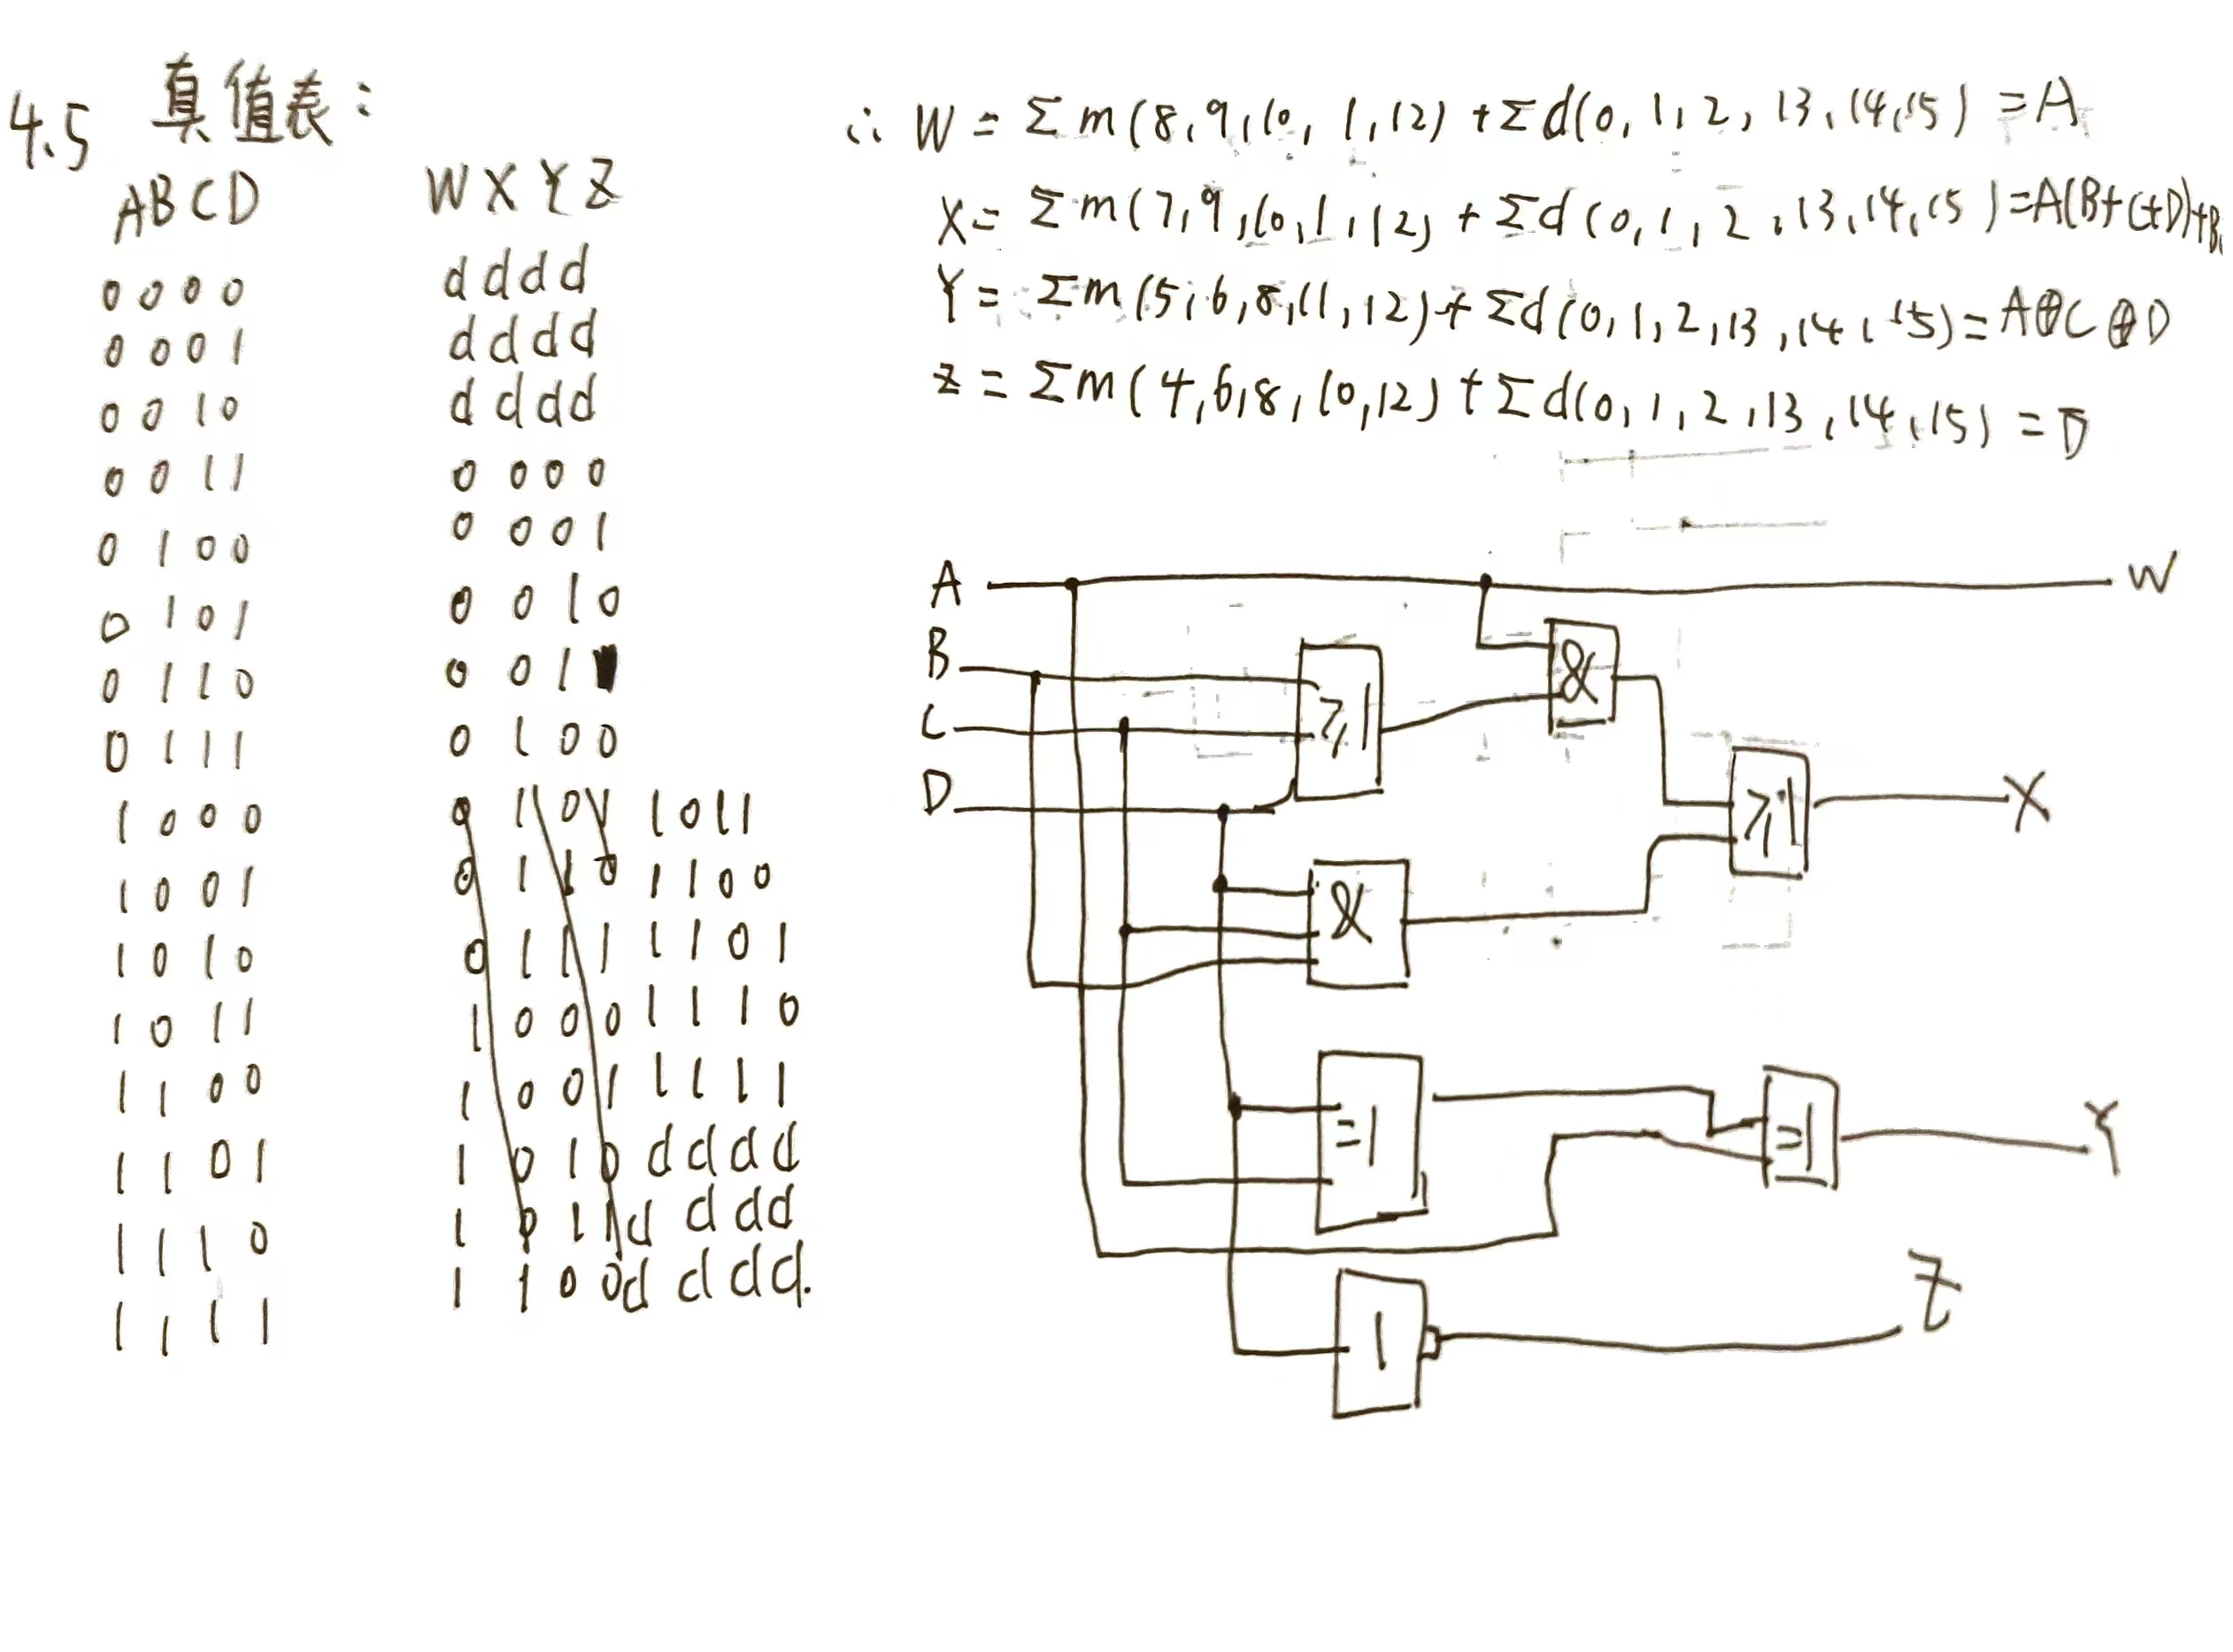 4.5 真值表:
ABCD WXYZ
0000 dddd
0001 dddd
0010 dddd
0011 0000
0100 0001
0101 0010
0110 001
0111 0100
1000 1011
1001 0110 1100
1010 0111 1101
1011 1000 1110
1100 1001 1111
1101 1010 dddd
1110 101 dddd
1111 1100 dddd.
∴ W = Σm(8,9,10,1,12) + Σd(0,1,2,13,14,15) = A
X = Σm(7,9,10,1,12) + Σd(0,1,2,13,14,15) = A(B+C+D)+B
Y = Σm(5,6,8,11,12) + Σd(0,1,2,13,14,15) = A⊕C⊕D
Z = Σm(4,6,8,10,12) + Σd(0,1,2,13,14,15) = D̅
A W
B &
C ≥1
D ≥1 X
&
=1 =1 Y
1 Z